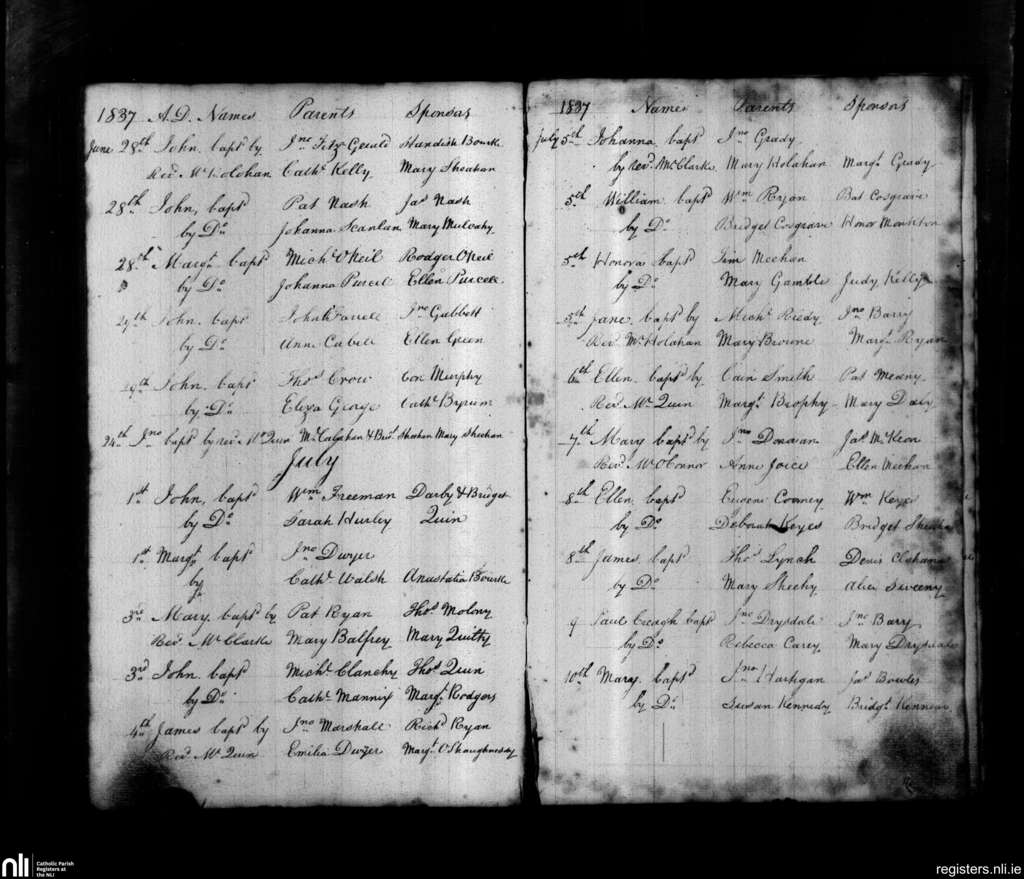 1837 A.D. Names Parents Sponsors
June 28th John, bapd by Jno Fitz-Gerald Standish Bourke
Revd Mr Holohan Cathe Kelly Mary Sheahan
28th John, bapd Pat Nash Jas Nash
by Do Johanna Scanlan Mary Mulcahy
28th Margt bapd Michl O'Neil Rodger O'Neil
by Do Johanna Purcel Ellen Purcell
29th John, bapd John Farrell Jno Gubbett
by Do Anne Cabill Ellen Green
29th John, bapd Thos Crow Con Murphy
by Do Eliza George Cathe
24th Jno bapd by revd Mr Quin McCalahan & Bridt Sheehan Mary Sheehan
July
1st John, bapd Wm Freeman Darby & Bridget
by Do Sarah Hurley Quin
1st Margt bapd Jno Dwyer
by Cathe Walsh Anastatia Bourke
3rd Mary, bapd by Pat Ryan Thos Molony
Revd Mr Clarke Mary Balfrey Mary Quilty
3rd John, bapd Michl Clanchy Thos Quin
by Do Cathe Mannix Margt Rodgers
4th James bapd by Jno Marshall Richd Ryan
Revd Mr Quin Emilia Dwyer Margt O'Shaughnessy
1837 Names Parents Sponsors
July 5th Johanna bapd Jno Grady
by Revd Mr Clarke Mary Holahan Margt Grady
5th William bapd Wm Ryan Bat Cosgrave
by Do Bridget Cosgrave Honor
5th Honora bapd Jim Meehan
by Do Mary Gamble Judy Kelly
5th Jane, bapd by Michl Reedy Jno Barry
Revd Mr Holahan Mary Browne Margt Ryan
6th Ellen, bapd by Cain Smith Pat Meany
Revd Mr Quin Margt Brophy Mary Daly
7th Mary bapd by Jno Donovan Jas McKeon
Revd Mr O'Connor Anne Joice Ellen Meehan
8th Ellen, bapd Eugene Cooney Wm Keyes
by Do Deborah Keyes Bridget
8th James bapd Thos Lynch Denis
by Do Mary Sheehy Alice Sweeny
9 Paul Creagh bapd Jno Drysdale Jno Barry
by Do Rebecca Carey Mary Drysdale
10th Mary, bapd Jno Hartigan Jas Bowles
by Do Susan Kennedy Bridgt
nli Catholic Parish
Registers at
the NLI
registers.nli.ie